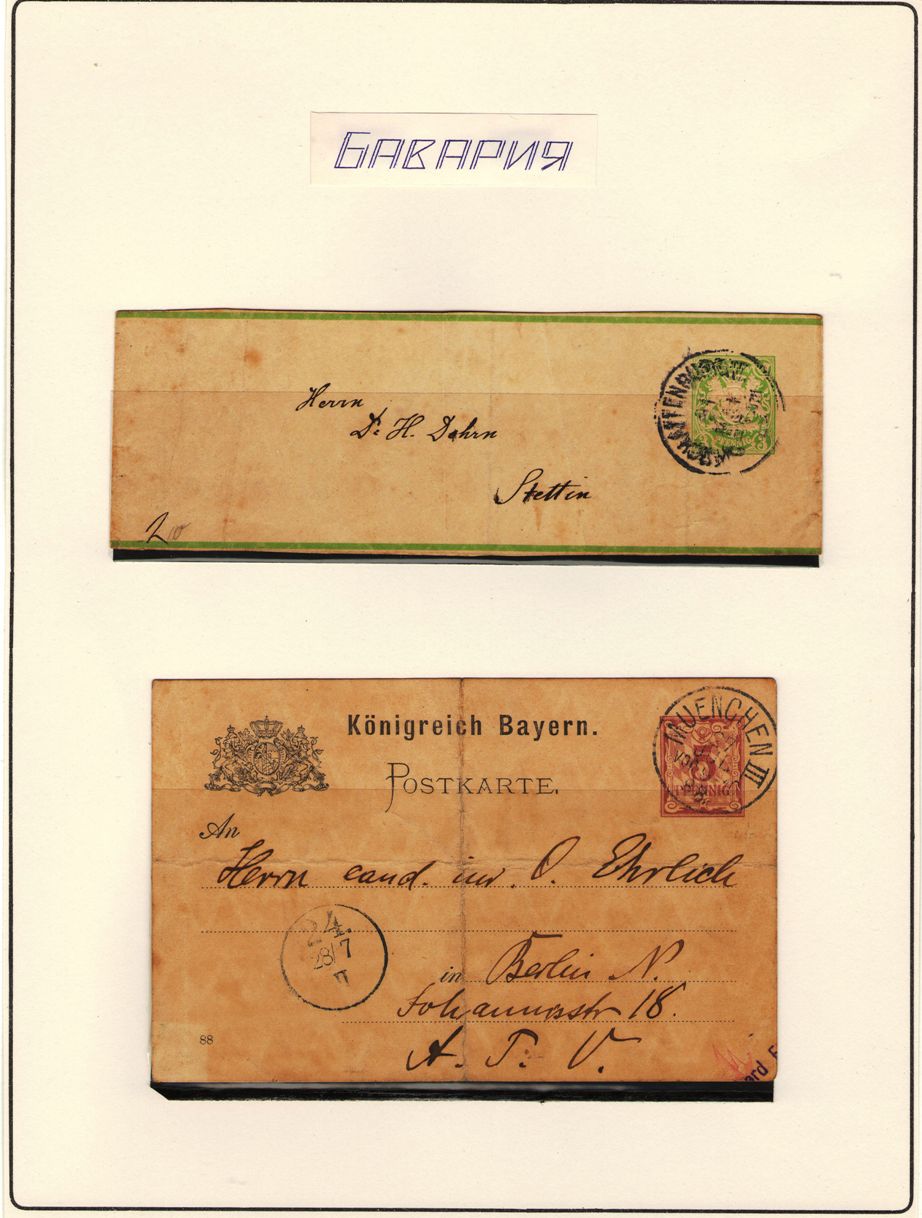 БАВАРИЯ
Herrn
Dr. H. Dohrn
Stettin
2
PFENNIG
Königreich Bayern.
POSTKARTE.
MUENCHEN III
5
PFENNIG
An
Herrn cand. iur. O. Ehrlich
24.
28/7
in Berlin N.
Johannisstr 18.
A. T. V.
88
ard